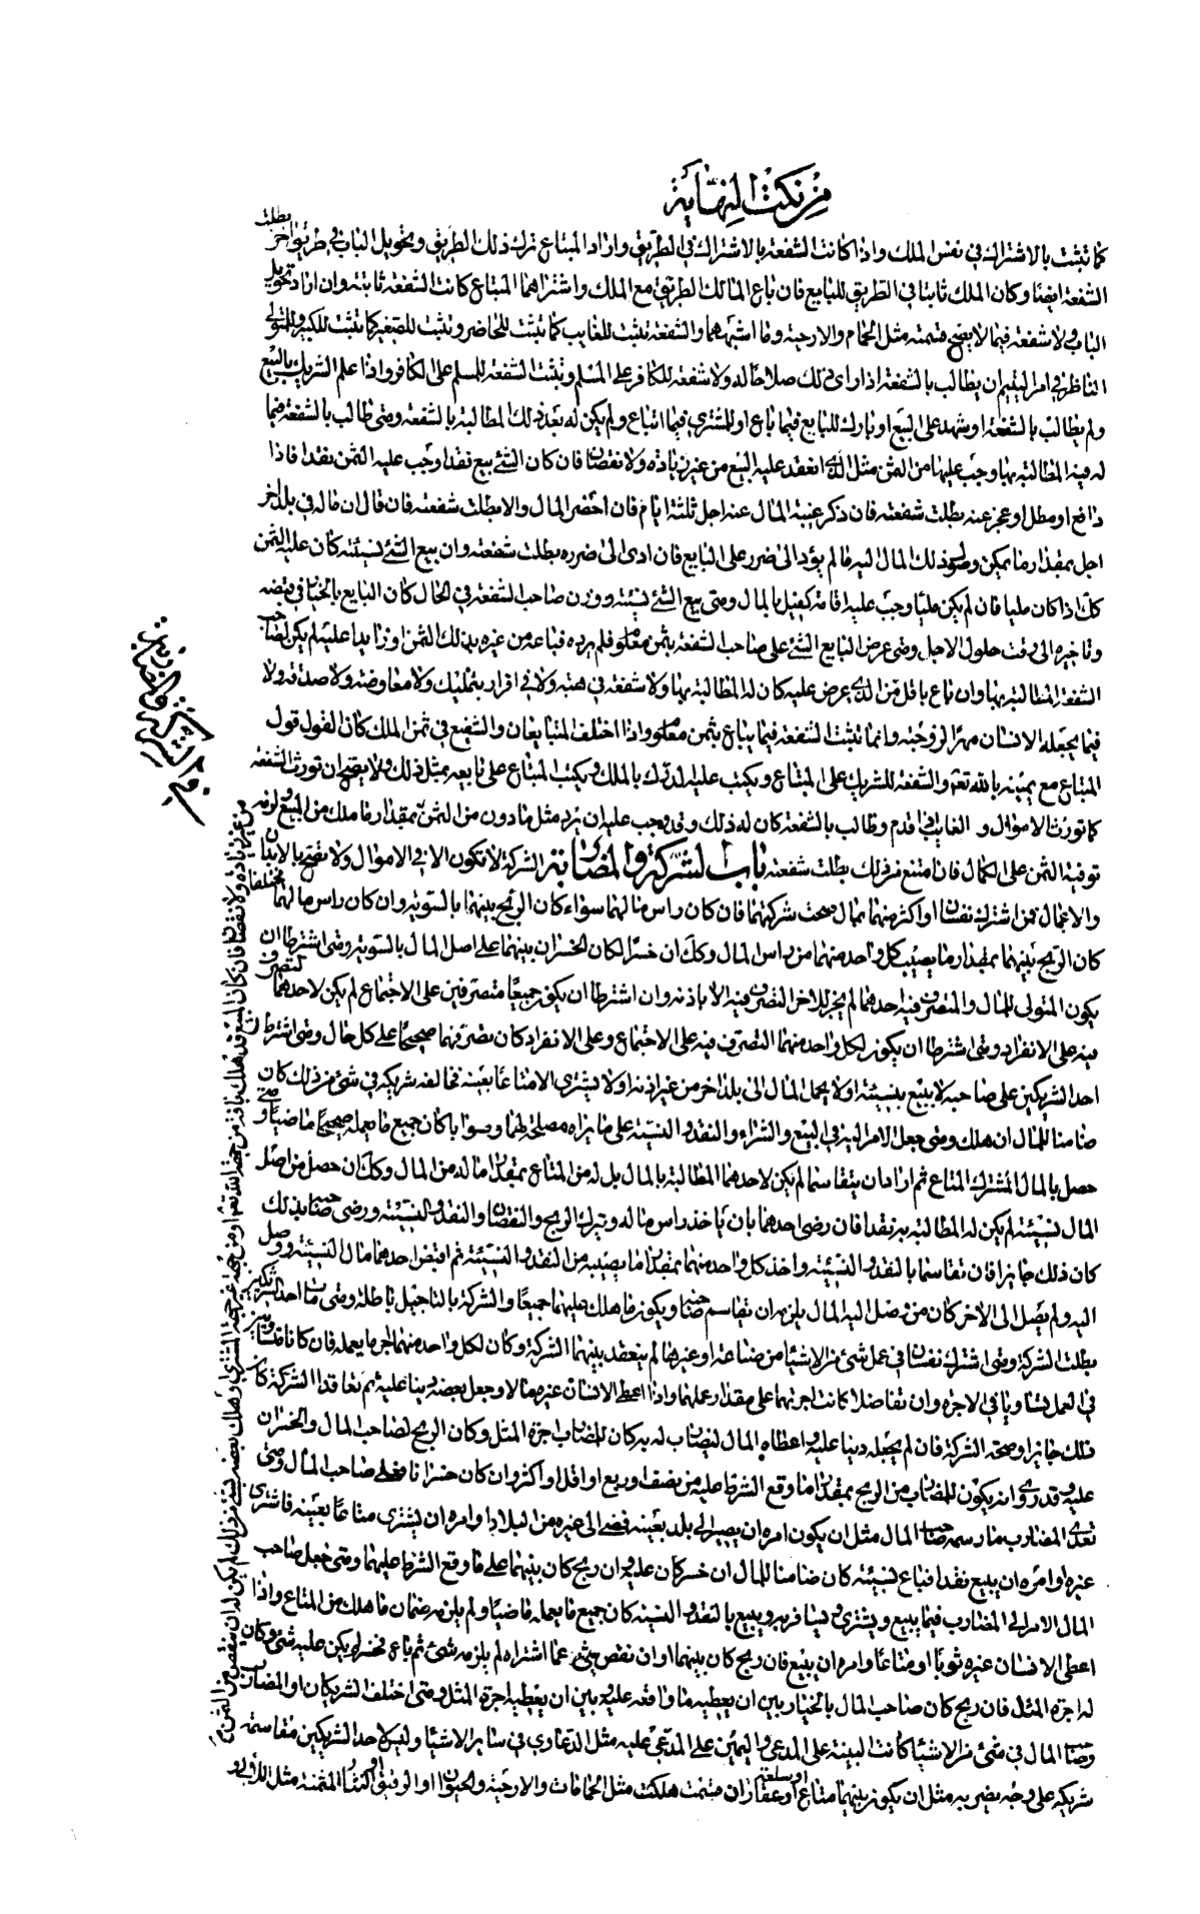 من نكت النهاية
كما تثبت بالاشتراك في نفس الملك واذا كانت الشفعة بالاشتراك في الطريق واراد المبتاع ترك ذلك الطريق وتحويل الباب في طريق اخر بطلت
الشفعة ايضا وكان الملك ثابتا في الطريق للبايع فان باع المالك الطريق مع الملك واشتراهما المبتاع كانت الشفعة ثابتة وان اراد تحويل
الباب ولا شفعة فيما لا يصح قسمته مثل الحمام والارحية وما اشبههما والشفعة تثبت للغايب كما تثبت للحاضر وتثبت للصغير كما تثبت للكبير وللمتولي
الناظر في امر اليتيم ان يطالب بالشفعة اذا راى ذلك صلاحا له ولا شفعة للكافر على المسلم وتثبت الشفعة للمسلم على الكافر واذا علم الشريك بالبيع
ولم يطالب بالشفعة او شهد على البيع او بارك للبايع فيما باع او للمشتري فيما ابتاع ولم يكن له بعد ذلك المطالبة بالشفعة ومتى طالب بالشفعة فيما
له فيه المطالبة بها وجب عليها من الثمن مثل الذي انعقد عليه البيع من غير زيادة ولا نقصان فان كان الشئ بيع نقدا وجب عليه الثمن نقدا فاذا
دافع او مطل او عجز عنه بطلت شفعته فان ذكر غيبة المال عنه اجل ثلثة ايام فان احضر المال والا بطلت شفعته فان قال ان ماله في بلد اخر
اجل بمقدار ما يمكن وصول ذلك المال اليه ما لم يؤد الى ضرر على البايع فان ادى الى ضرره بطلت شفعته وان بيع الشئ نسيئة كان عليه الثمن
كك اذا كان مليا فان لم يكن مليا وجب عليه اقامة كفيل بالمال ومتى بيع الشئ نسيئة ووزن صاحب الشفعة في الحال كان البايع بالخيار في قبضه
وتاخيره الى وقت حلول الاجل ومتى عرض البايع الشئ على صاحب الشفعة بثمن معلوم فلم يرده فباعه من غيره بذلك الثمن او زايدا عليه لم يكن لصاحب
الشفعة المطالبة بها وان باع باقل من الذي عرض عليه كان له المطالبة بها ولا شفعة في هبة ولا في اقرار بتمليك ولا معاوضة ولا صدقة ولا
فيما يجعله الانسان مهرا لزوجته وانما تثبت الشفعة فيما يباع بثمن معلوم واذا اختلف المتبايعان والشفيع في ثمن الملك كان القول قول
المبتاع مع يمينه بالله تعم والشفعة للشريك على المبتاع ويكتب عليه الدرك بالملك ويكتب المبتاع على بايعه بمثل ذلك ولا يصح ان تورث الشفعة
كما تورث الاموال و الغايب اذا قدم وطالب بالشفعة كان له ذلك وقد وجب عليه ان يرد مثل ما وزن من الثمن بمقدار ما ملك من المبيع ولزمه
توفية الثمن على الكمال فان امتنع من ذلك بطلت شفعته باب الشركة والمضاربة الشركة لا تكون الا في الاموال ولا تصح بالابدان
والاعمال فمن اشترك نفسان او اكثر منهما بمال صحت شركتهما فان كان راس مالهما سواء كان الربح بينهما بالسوية وان كان راس مالهما مختلفا
كان الربح بينهما بمقدار ما يصيب كل واحد منهما من راس المال وكك ان خسرا كان الخسران بينهما على اصل المال بالسوية ومتى اشترطا ان
يكون المتولي للمال والمتصرف فيه احدهما لم يجز للاخر التصرف فيه الا باذنه وان اشترطا ان يكونا جميعا متصرفين على الاجتماع لم يكن لاحدهما التصرف
فيه على الانفراد ومتى اشترطا ان يكون لكل واحد منهما التصرف فيه على الاجتماع وعلى الانفراد كان تصرفهما صحيحا على كل حال ومتى اشترط
احد الشريكين على صاحبه لا يبيع بنسيئة او لا يحمل المال الى بلد اخر من غير اذنه او لا يشتري الا متاعا بعينه فخالفه شريكه في شئ من ذلك كان
ضامنا للمال ان هلك ومتى جعل الامر اليه في البيع والشراء والنقد والنسية على ما يراه مصلحة لهما وصوابا كان جميع ما يعمله صحيحا ماضيا ومتى
حصل بالمال المشترك المتاع ثم ارادا ان يتقاسما لم يكن لاحدهما المطالبة بالمال بل له من المتاع بمقدار ما له من المال وكك ان حصل من اصل
المال نسيئة لم يكن له المطالبة به نقدا فان رضى احدهما بان ياخذ راس ماله ويترك الربح والنقصان والنقد والنسيئة ورضى صاحبه بذلك
كان ذلك جايزا فان تقاسما بالنقد والنسيئة واخذ كل واحد منهما بمقدار ما يصيبه من النقد والنسيئة ثم اقبض احدهما مال النسيئة ووصل
اليه ولم يصل الى الاخر كان من وصل اليه المال يلزمه ان يقاسم صاحبه ويكون ما هلك عليهما جميعا والشركة بالتاجيل باطلة ومتى مات احد الشريكين
بطلت الشركة ومتى اشترك نفسان في عمل شئ من الاشيا من صناعة او غيرها لم ينعقد بينهما الشركة وكان لكل واحد منهما اجر ما يعمله فان كانا متساويين
في العمل تساويا في الاجرة وان تفاضلا كانت اجرتهما على مقدار عملهما واذا اعطى الانسان غيره مالا وجعل بعضه دينا عليه ثم تعاقدا الشركة كان
ذلك جايزا وصحت الشركة فان لم يجعله دينا عليه واعطاه المال ليضارب له به كان للمضارب اجرة المثل وكان الربح لصاحب المال والخسران
عليه وقد روى انه يكون للمضارب من الربح بمقدار ما وقع الشرط عليه من نصف او ربع او اقل او اكثر وان كان خسرانا فعلى صاحب المال ومتى
تعدى المضارب ما رسمه صاحب المال مثل ان يكون امره ان يصير الى بلد بعينه فمضى الى غيره من البلاد او امره ان يشتري متاعا بعينه فاشترى
غيره او امره ان يبيع نقدا فباع نسيئة كان ضامنا للمال ان خسر كان عليه وان ربح كان بينهما على ما وقع الشرط عليهما ومتى جعل صاحب
المال الامر الى المضارب فيما يبيع ويشتري ويسافر به ويبيع بالنقد والنسية كان جميع ما يعمله ماضيا ولم يلزمه ضمان ما هلك من المتاع واذا
اعطى الانسان غيره ثوبا او متاعا وامره ان يبيع فان ربح كان بينهما او ان نقص بشئ عما اشتراه لم يلزمه شئ ثم باع فخسر لم يكن عليه شئ وكان
له اجرة المثل فان ربح كان صاحب المال بالخيار بين ان يعطيه ما وافقه عليه وبين ان يعطيه اجرة المثل ومتى اختلف الشريكان او المضارب
وصاحب المال في شئ من الاشيا كانت البينة على المدعي واليمين على المدعى عليه مثل الدعاوي في ساير الاشيا وليس لاحد الشريكين مقاسمة
شريكه على وجه يضر به مثل ان يكون بينهما متاع او سلعة او عقار ان قسمت هلكت مثل الحمامات والارحية والحيوان او الرقيق او المتاع المثمنة مثل اللؤلؤ و
من غير زيادة ولا نقصان فان كان المبيع قد هلك بافة من جهة الله تعم او من جهة غير جهة المشتري او هلك بعضه بشئ من ذلك لم يكن له ان ينقص من الثمن م